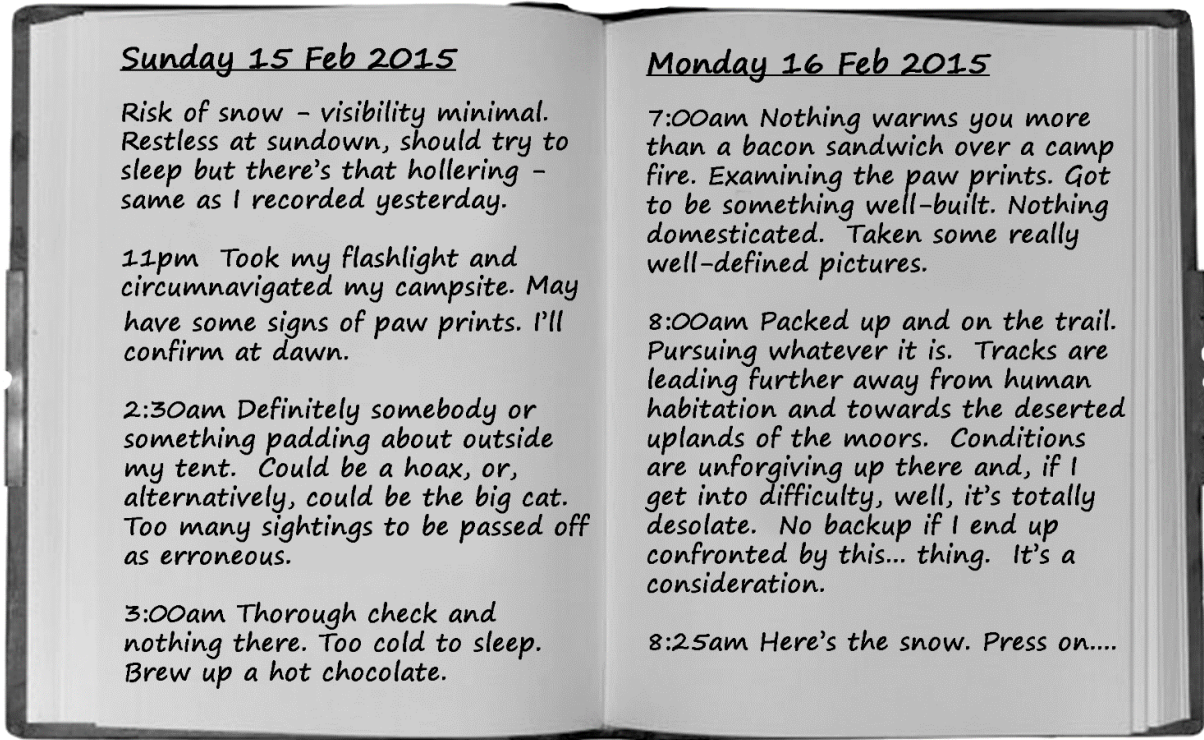 Sunday 15 Feb 2015
Risk of snow - visibility minimal.
Restless at sundown, should try to
sleep but there's that hollering -
same as I recorded yesterday.
11pm  Took my flashlight and
circumnavigated my campsite. May
have some signs of paw prints. I'll
confirm at dawn.
2:30am Definitely somebody or
something padding about outside
my tent.  Could be a hoax, or,
alternatively, could be the big cat.
Too many sightings to be passed off
as erroneous.
3:00am Thorough check and
nothing there. Too cold to sleep.
Brew up a hot chocolate.
Monday 16 Feb 2015
7:00am Nothing warms you more
than a bacon sandwich over a camp
fire. Examining the paw prints. Got
to be something well-built. Nothing
domesticated.  Taken some really
well-defined pictures.
8:00am Packed up and on the trail.
Pursuing whatever it is.  Tracks are
leading further away from human
habitation and towards the deserted
uplands of the moors.  Conditions
are unforgiving up there and, if I
get into difficulty, well, it's totally
desolate.  No backup if I end up
confronted by this... thing.  It's a
consideration.
8:25am Here's the snow. Press on....